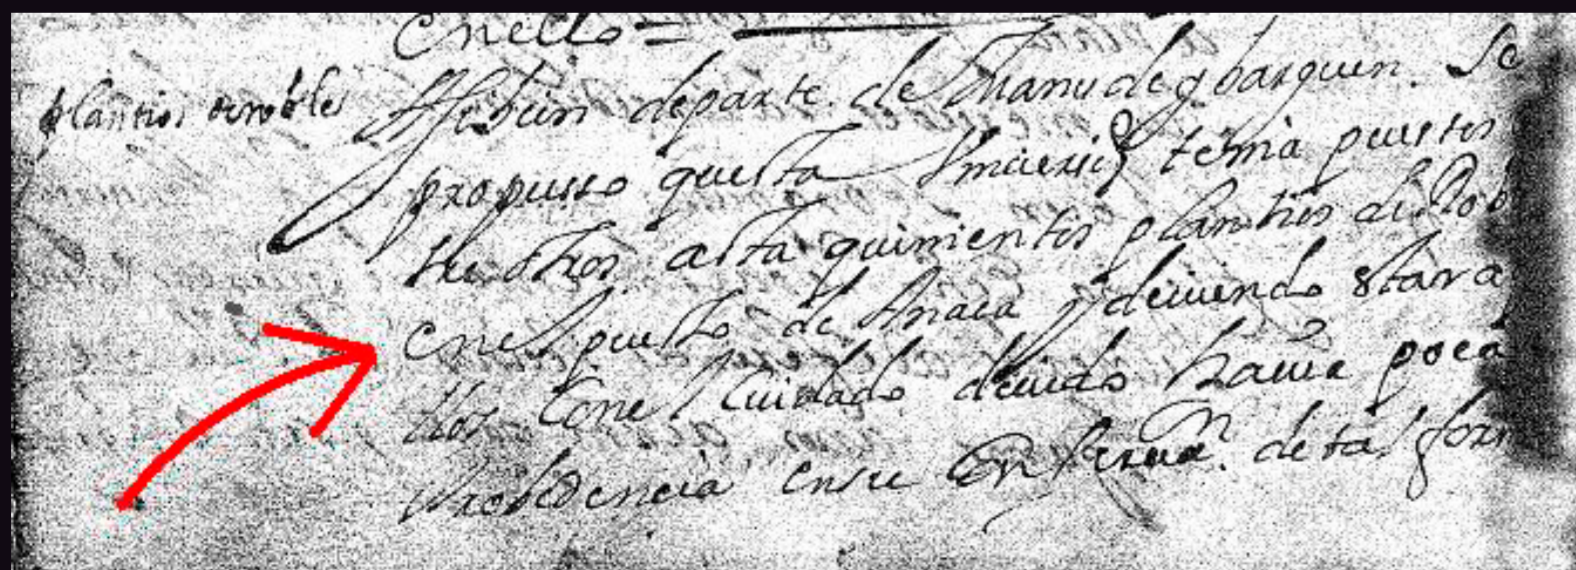 en ello =
plantios de robles
Assi bien de parte de Manu de gbarguen. Se
propusso que esta Vniuersid tenia puestos
hue stros asta quinientos plantios de Rob
en el puesto de Anaca y deuiendo estar a
llos con el Cuidado deuido hauia poca
Probidencia en su Conseruaon. de tal form